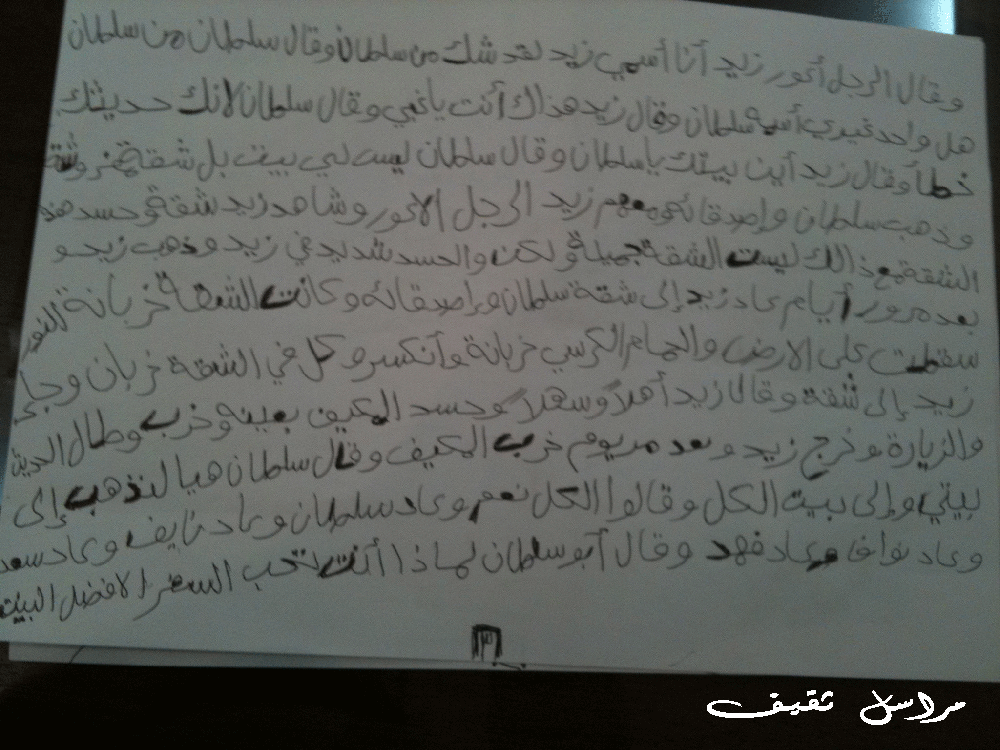 وقال الرجل أعور زيد أنا أسمي زيد لقد شك من سلطان وقال سلطان من سلطان
هل واحد غيري أسمه سلطان وقال زيد هذاك أنت ياغبي وقال سلطان لانك حديثك
خطأ وقال زيد أين بيتك ياسلطان وقال سلطان ليست لي بيت بل شقة
وذهب سلطان وإصدقائه ومعهم زيد الرجل الاعور وشاهد زيد شقة وحسد هذه
الشقة مع ذالك ليست الشقة جميلة ولكن والحسد شديد في زيد وذهب زيد و
بعد مرور أيام عاد زيد إلى شقة سلطان وإصدقائه وكانت الشقة خربانة النور
سقطت على الارض والحمام الكرسي خربانة وأنكسر وكل في الشقة خربان وجاء
زيد إلى شقة وقالا زيد أهلاً وسهلاً وحسد المكيف بعينه وخرب وطال الحديث
والزيارة وخرج زيد وبعد مر يوم خرب المكيف وقال سلطان هيا لنذهب إلى
بيتي وإلى بيت الكل وقالوا الكل نعم وعاد سلطان وعاد نايف وعاد سعد
وعاد نوافا وعاد فهد وقال أبو سلطان لماذا أنت تحب السفر الافضل البيت
٣
مراسل ثقيف